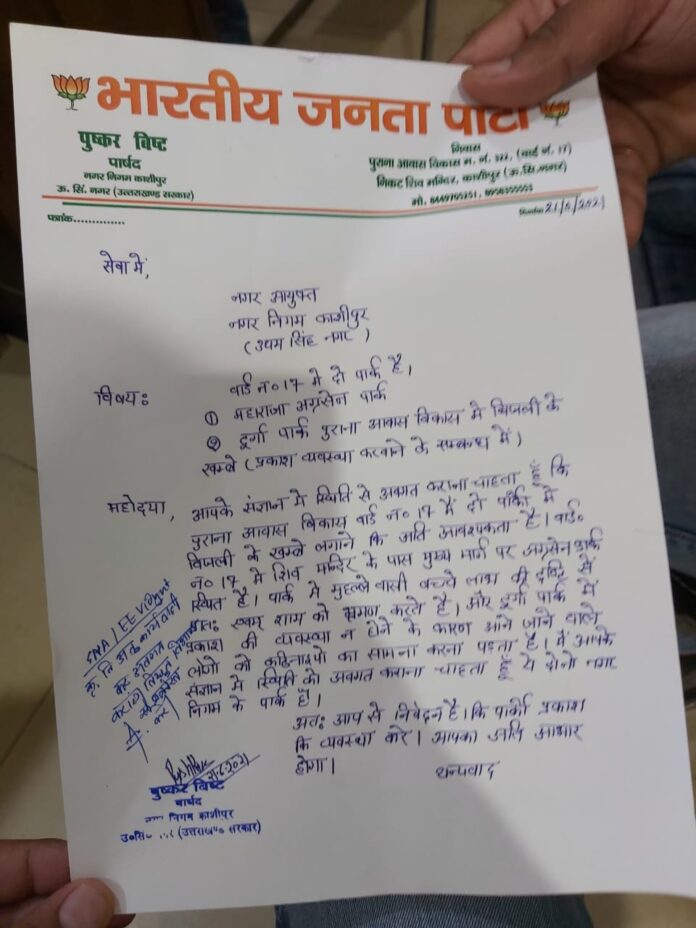 भारतीय जनता पार्टी
पुष्कर बिष्ट
पार्षद
नगर निगम काशीपुर
ऊ. सिं. नगर (उत्तराखण्ड सरकार)
निवास
पुराना आवास विकास म. नं. 322, (वार्ड नं. 17)
निकट शिव मन्दिर, काशीपुर (ऊ.सि.नगर)
मो.
पत्रांक..............
दिनांक 21/6/2021
सेवा में,
नगर आयुक्त
नगर निगम काशीपुर
(उधम सिंह नगर)
विषय: वार्ड न० 17 मे दो पार्क है।
① महाराजा अग्रसेन पार्क
② दुर्गा पार्क पुराना आवास विकास मे बिजली के
खम्बे (प्रकाश व्यवस्था करवाने के सम्बन्ध में)
महोदया, आपके संज्ञान मे स्थिति से अवगत कराना चाहता हूँ कि
पुराना आवास विकास वार्ड न० 17 मे दो पार्को मे
बिजली के खम्बे लगाने कि अति आवश्यकता है। वार्ड
न० 17 मे शिव मन्दिर के पास मुख्य मार्ग पर अग्रसेन पार्क
स्थित है। पार्क मे मुहल्ले वासी बच्चे लाभ की दृष्टि से
प्रातः स्वम् शाम को भ्रमण करते है। और दुर्गा पार्क में
प्रकाश की व्यवस्था न होने के कारण आने जाने वाले
लोगो को कठिनाइयो का सामना करना पड़ता है। मैं आपके
संज्ञान मे स्थिती को अवगत कराना चाहता हूँ ये दोनो नगर
निगम के पार्क है।
अतः आप से निवेदन है। कि पार्को प्रकाश
कि व्यवस्था करे। आपका अति आभार
होगा।
धन्यवाद
21-6-2021
पुष्कर बिष्ट
पार्षद
निगम काशीपुर
(उत्तराखण्ड सरकार)